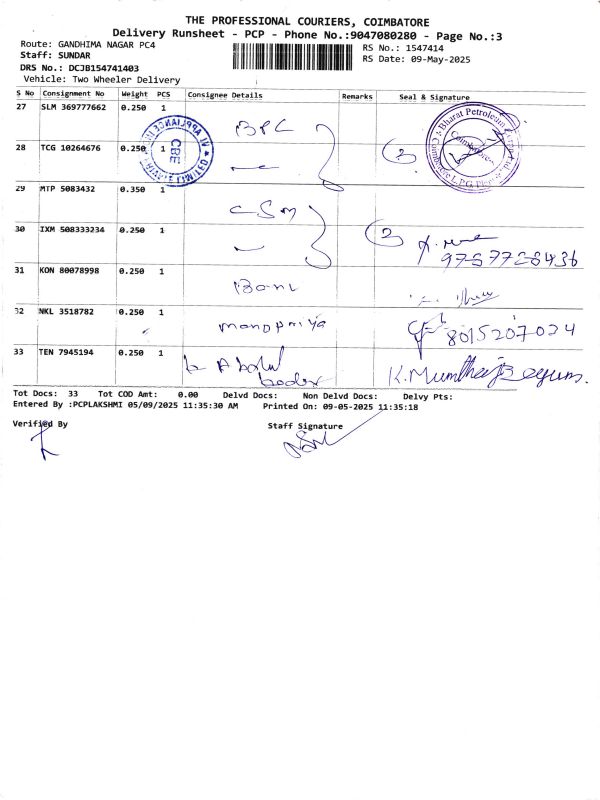 THE PROFESSIONAL COURIERS, COIMBATORE
Delivery Runsheet - PCP - Phone No.:9047080280 - Page No.:3
Route: GANDHIMA NAGAR PC4
Staff: SUNDAR
DRS No.: DCJB154741403
Vehicle: Two Wheeler Delivery
RS No.: 1547414
RS Date: 09-May-2025
S No Consignment No Weight PCS Consignee Details Remarks Seal & Signature
27 SLM 369777662 0.250 1 BPC
28 TCG 10264676 0.250 1
CBE
Bharat Petroleum
Coimbatore
29 MTP 5083432 0.350 1 CSM
30 IXM 508333234 0.250 1
31 KON 80078998 0.250 1 Banu
32 NKL 3518782 0.250 1 manopriya 8015207024
33 TEN 7945194 0.250 1 K. Mumthaj Begum.
Tot Docs: 33 Tot COD Amt: 0.00 Delvd Docs: Non Delvd Docs: Delvy Pts:
Entered By :PCPLAKSHMI 05/09/2025 11:35:30 AM Printed On: 09-05-2025 11:35:18
Verified By Staff Signature